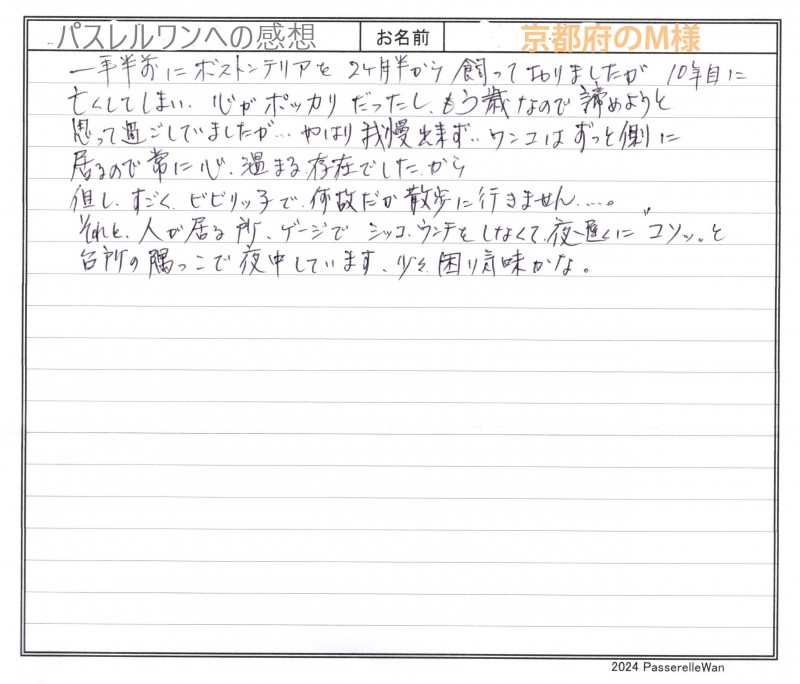 パスレルワンへの感想 お名前 京都府のM様
一年半前にボストンテリアを2ヶ月半から飼っておりましたが 10年目に
亡くしてしまい、心がポッカリだったし、もう歳なので諦めようと
思って過ごしていましたが…やはり我慢出来ず‥ワンコはずっと側に
居るので常に心、温まる存在でした、から
但し、すごく、ビビリッ子で、何故だか散歩に行きません……。
それと、人が居る所、ゲージでシッコ、ウンチをしなくて、夜、遅くに〝コソッ〟と
台所の隅っこで夜中しています、少々、困り気味かな。
2024 PasserelleWan